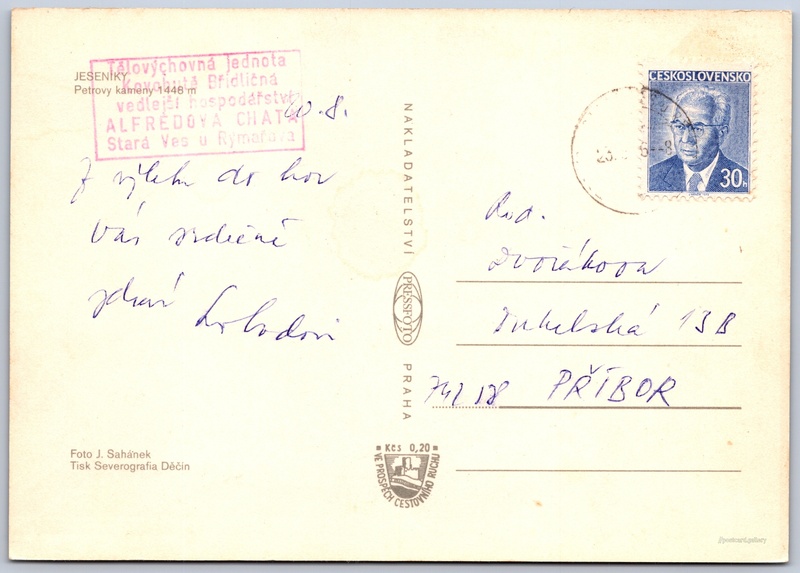 Tělovýchovná jednota
Kovohutě Břidličná
vedlejší hospodářství
ALFRÉDOVA CHATA
Stará Ves u Rýmařova
JESENÍKY
Petrovy kameny 1448 m
20.8.
Z výletu do hor
Vás srdečně
zdraví
ČESKOSLOVENSKO
30h
Rod.
Dvořákova
Dukelská 13B
742 58 PŘÍBOR
NAKLADATELSTVÍ
PRESSFOTO
PRAHA
Kčs 0,20
VE PROSPĚCH CESTOVNÍHO RUCHU
Foto J. Sahánek
Tisk Severografia Děčín
//postcard.gallery